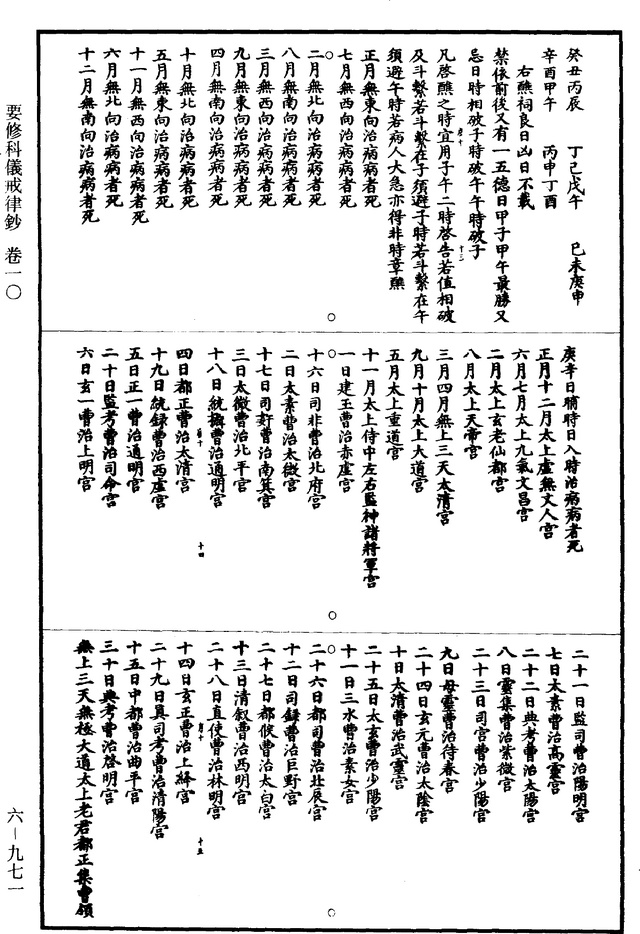 癸丑丙辰　丁己戊午　己未庚申
辛酉甲午　丙申丁酉
右醮祠良日凶日不載
禁依前後又有一五德日甲子甲午最勝又
忌日時相破子時破午午時破子
凡啓醮之時宜用子午二時啓告若值相破
及斗繫若斗繫在子須避子時若斗繫在午
須避午時若病人大急亦得非時章醮
正月無東向治病病者死
七月無西向治病病者死
二月無北向治病病者死
八月無南向治病病者死
三月無西向治病病者死
九月無東向治病病者死
四月無南向治病病者死
十月無北向治病病者死
五月無東向治病病者死
十一月無西向治病病者死
六月無北向治病病者死
十二月無南向治病病者死
庚辛日晡時日入時治病病者死
正月十二月太上虛無丈人宮
六月七月太上九氣文昌宮
二月太上玄老仙都宮
八月太上天帝宮
三月四月無上三天太清宮
九月十月太上大道宮
五月太上重道宮
十一月太上侍中左右監神諸將軍宮
一日建王曹治赤虛宮
十六日司非曹治北府宮
二日太素曹治太微宮
十七日司奸曹治南箕宮
三日太微曹治北平宮
十八日統攝曹治通明宮
四日都正曹治太清宮
十九日統録曹治西虛宮
五日正一曹治通明宮
二十日監考曹治司命宮
六日玄一曹治上明宮
二十一日監司曹治陽明宮
七日太素曹治高靈宮
二十二日典考曹治太陽宮
八日靈集曹治紫微宮
二十三日司官曹治少陽宮
九日母靈曹治待春宮
二十四日玄元曹治太陰宮
十日太清曹治武靈宮
二十五日太玄曹治少陽宮
十一日三水曹治素女宮
二十六日都司曹治北辰宮
十二日司録曹治巨野宮
二十七日都候曹治太白宮
十三日清叙曹治西明宮
二十八日直使曹治林明宮
十四日玄正曹治上絳宮
二十九日真司考曹治清陽宮
十五日中都曹治曲平宮
三十日典考曹治啓明宮
無上三天無極大道太上老君都正集曹領
要修科儀戒律鈔　卷一〇
六－九七一